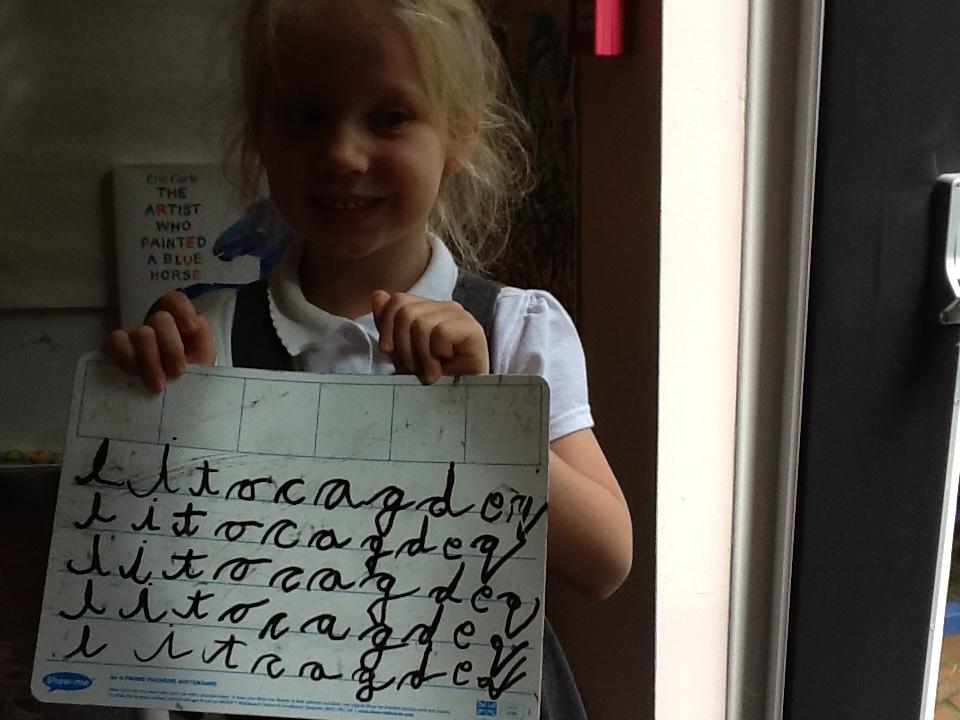 Eric Carle
THE
ARTIST
WHO
PAINTED
A BLUE
HORSE
l i t o c a g d e q
l i t o c a g d e q
l i t o c a g d e q
l i t o c a g d e q
l i t c a g d e q
Show-me